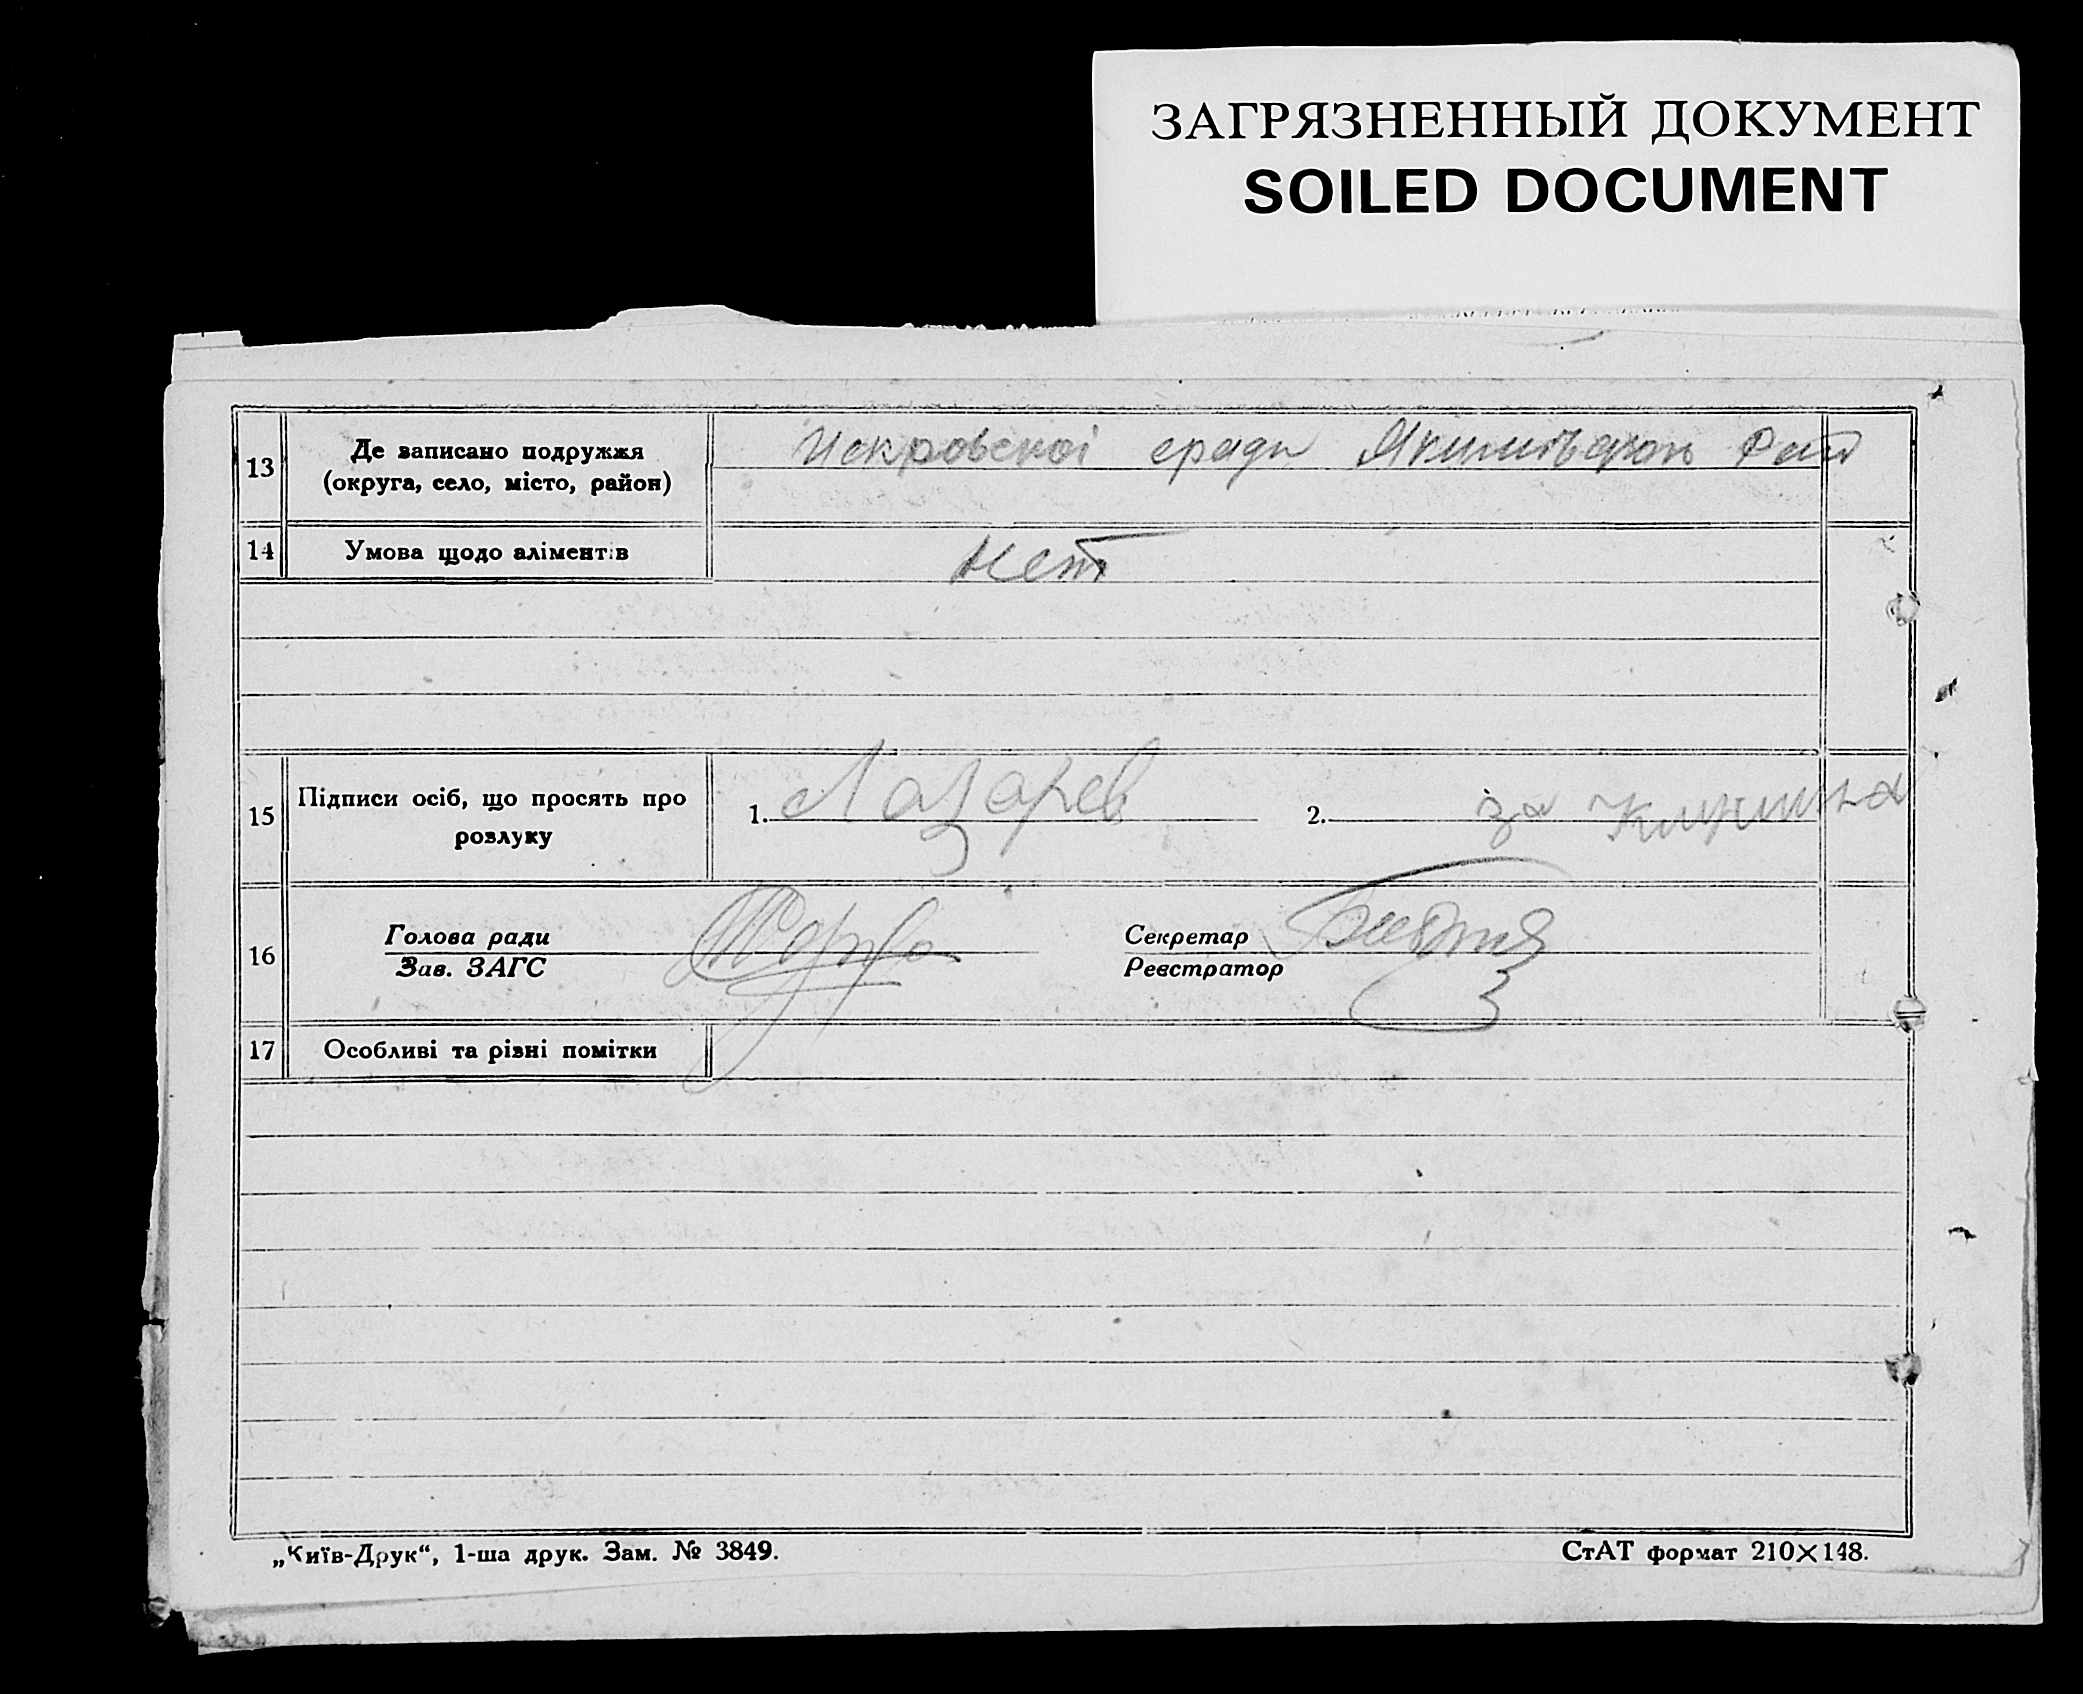 ЗАГРЯЗНЕННЫЙ ДОКУМЕНТ
SOILED DOCUMENT
13
Де записано подружжя
(округа, село, місто, район)
Искровскої сради
14
Умова щодо аліментів
нет
15
Підписи осіб, що просять про
розлуку
1. Лазарев
2. за
16
Голова ради
Зав. ЗАГС
Секретар
Реєстратор
17
Особливі та різні помітки
„Київ-Друк“, 1-ша друк. Зам. № 3849.
СтАТ формат 210×148.